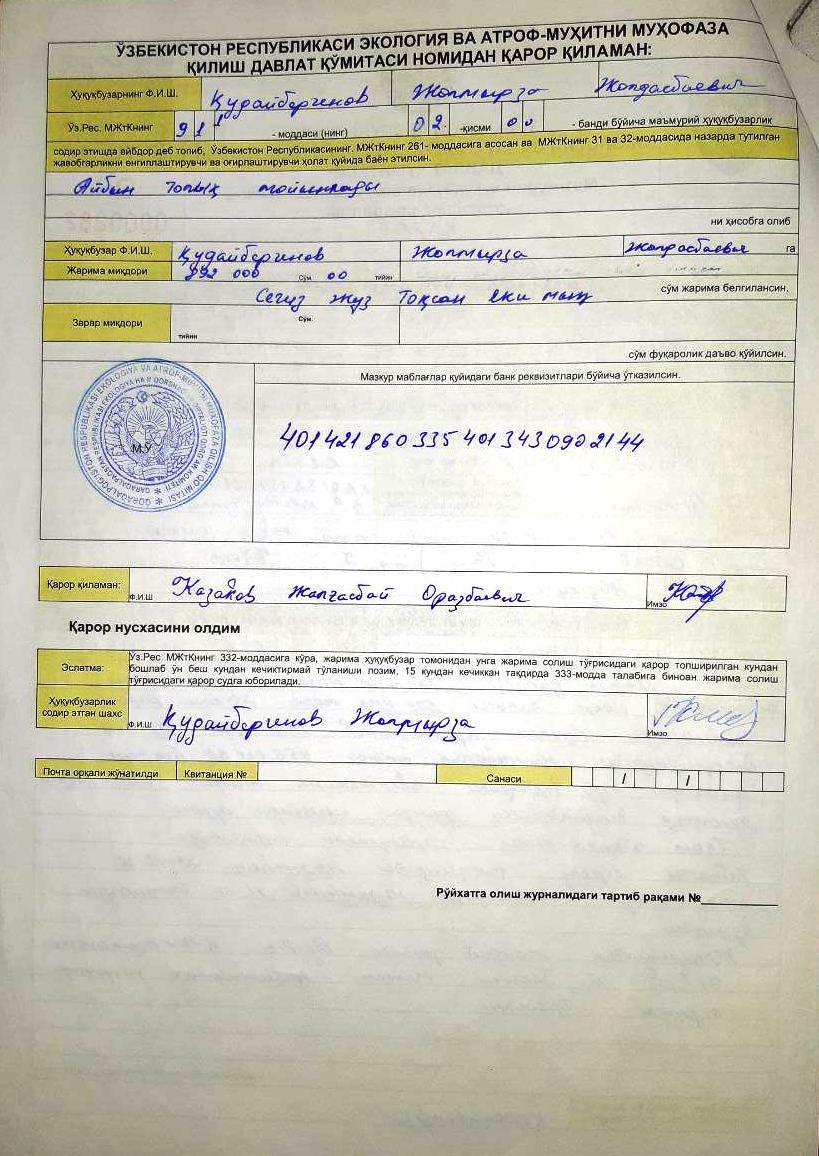 ЎЗБЕКИСТОН РЕСПУБЛИКАСИ ЭКОЛОГИЯ ВА АТРОФ-МУҲИТНИ МУҲОФАЗА
ҚИЛИШ ДАВЛАТ ҚЎМИТАСИ НОМИДАН ҚАРОР ҚИЛАМАН:
Ҳуқуқбузарнинг Ф.И.Ш. Қудайбергенов Жолмырза Жолдасбаевич
Ўз.Рес. МЖтКнинг 91 - моддаси (нинг) 02. -қисми 00 - банди бўйича маъмурий ҳуқуқбузарлик
содир этишда айбдор деб топиб, Ўзбекистон Республикасининг, МЖтКнинг 261- моддасига асосан ва МЖтКнинг 31 ва 32-моддасида назарда тутилган
жавобгарликни енгиллаштирувчи ва оғирлаштирувчи ҳолат қуйида баён этилсин.
Айбын толық мойынлады
0000282
ни ҳисобга олиб
Ҳуқуқбузар Ф.И.Ш. Қудайбергенов Жолмырза Жолдасбаевич га
Жарима миқдори 892 000 Сўм. 00 тийин
Сегиз жуз Тоқсан еки мың сўм жарима белгилансин.
Зарар миқдори тийин Сўм.
сўм фуқаролик даъво қўйилсин.
Мазкур маблағлар қуйидаги банк реквизитлари бўйича ўтказилсин.
М.Ў.
401421860335401343090 2144
Қарор қиламан: Ф.И.Ш Казаков Жалғасбай Оразбаевич Имзо
Қарор нусхасини олдим
Эслатма: Ўз.Рес МЖтКнинг 332-моддасига кўра, жарима ҳуқуқбузар томонидан унга жарима солиш тўғрисидаги қарор топширилган кундан
бошлаб ўн беш кундан кечиктирмай тўланиши лозим, 15 кундан кечиккан тақдирда 333-модда талабига биноан жарима солиш
тўғрисидаги қарор судга юборилади.
Ҳуқуқбузарлик
содир этган шахс Ф.И.Ш Қудайбергенов Жолмырза Имзо
Почта орқали жўнатилди Квитанция № Санаси / /
Рўйхатга олиш журналидаги тартиб рақами №